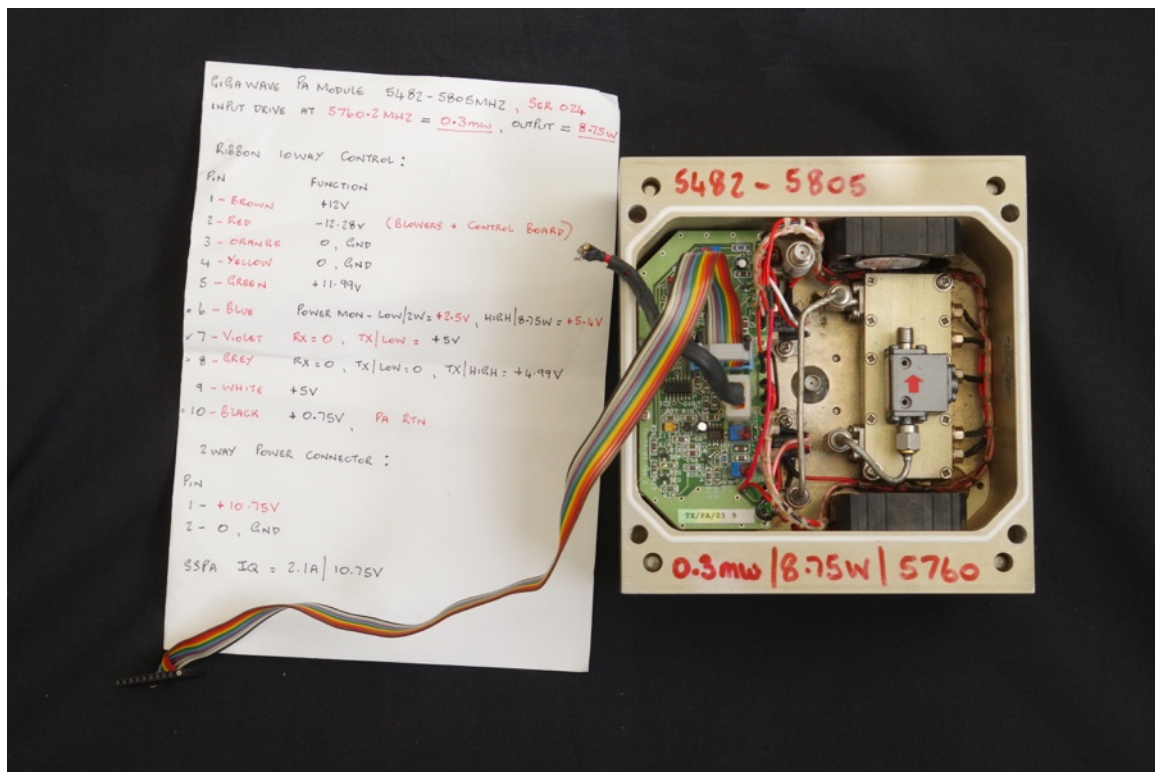 GIGAWAVE PA MODULE 5482-5805MHZ, SER 024
INPUT DRIVE AT 5760.2 MHZ = 0.3mW, OUTPUT = 8.75W
RIBBON 10WAY CONTROL:
PIN FUNCTION
1 - BROWN +12V
2 - RED -12.28V (BLOWERS + CONTROL BOARD)
3 - ORANGE 0, GND
4 - YELLOW 0, GND
5 - GREEN +11.99V
6 - BLUE POWER MON - LOW/2W = +2.5V, HIGH/8.75W = +5.4V
7 - VIOLET RX = 0, TX/LOW = +5V
8 - GREY RX = 0, TX/LOW = 0, TX/HIGH = +4.99V
9 - WHITE +5V
10 - BLACK +0.75V, PA RTN
2 WAY POWER CONNECTOR:
PIN
1 - +10.75V
2 - 0, GND
SSPA IQ = 2.1A/10.75V
5482 - 5805
TX/PA/03 9
0.3mW/8.75W/5760